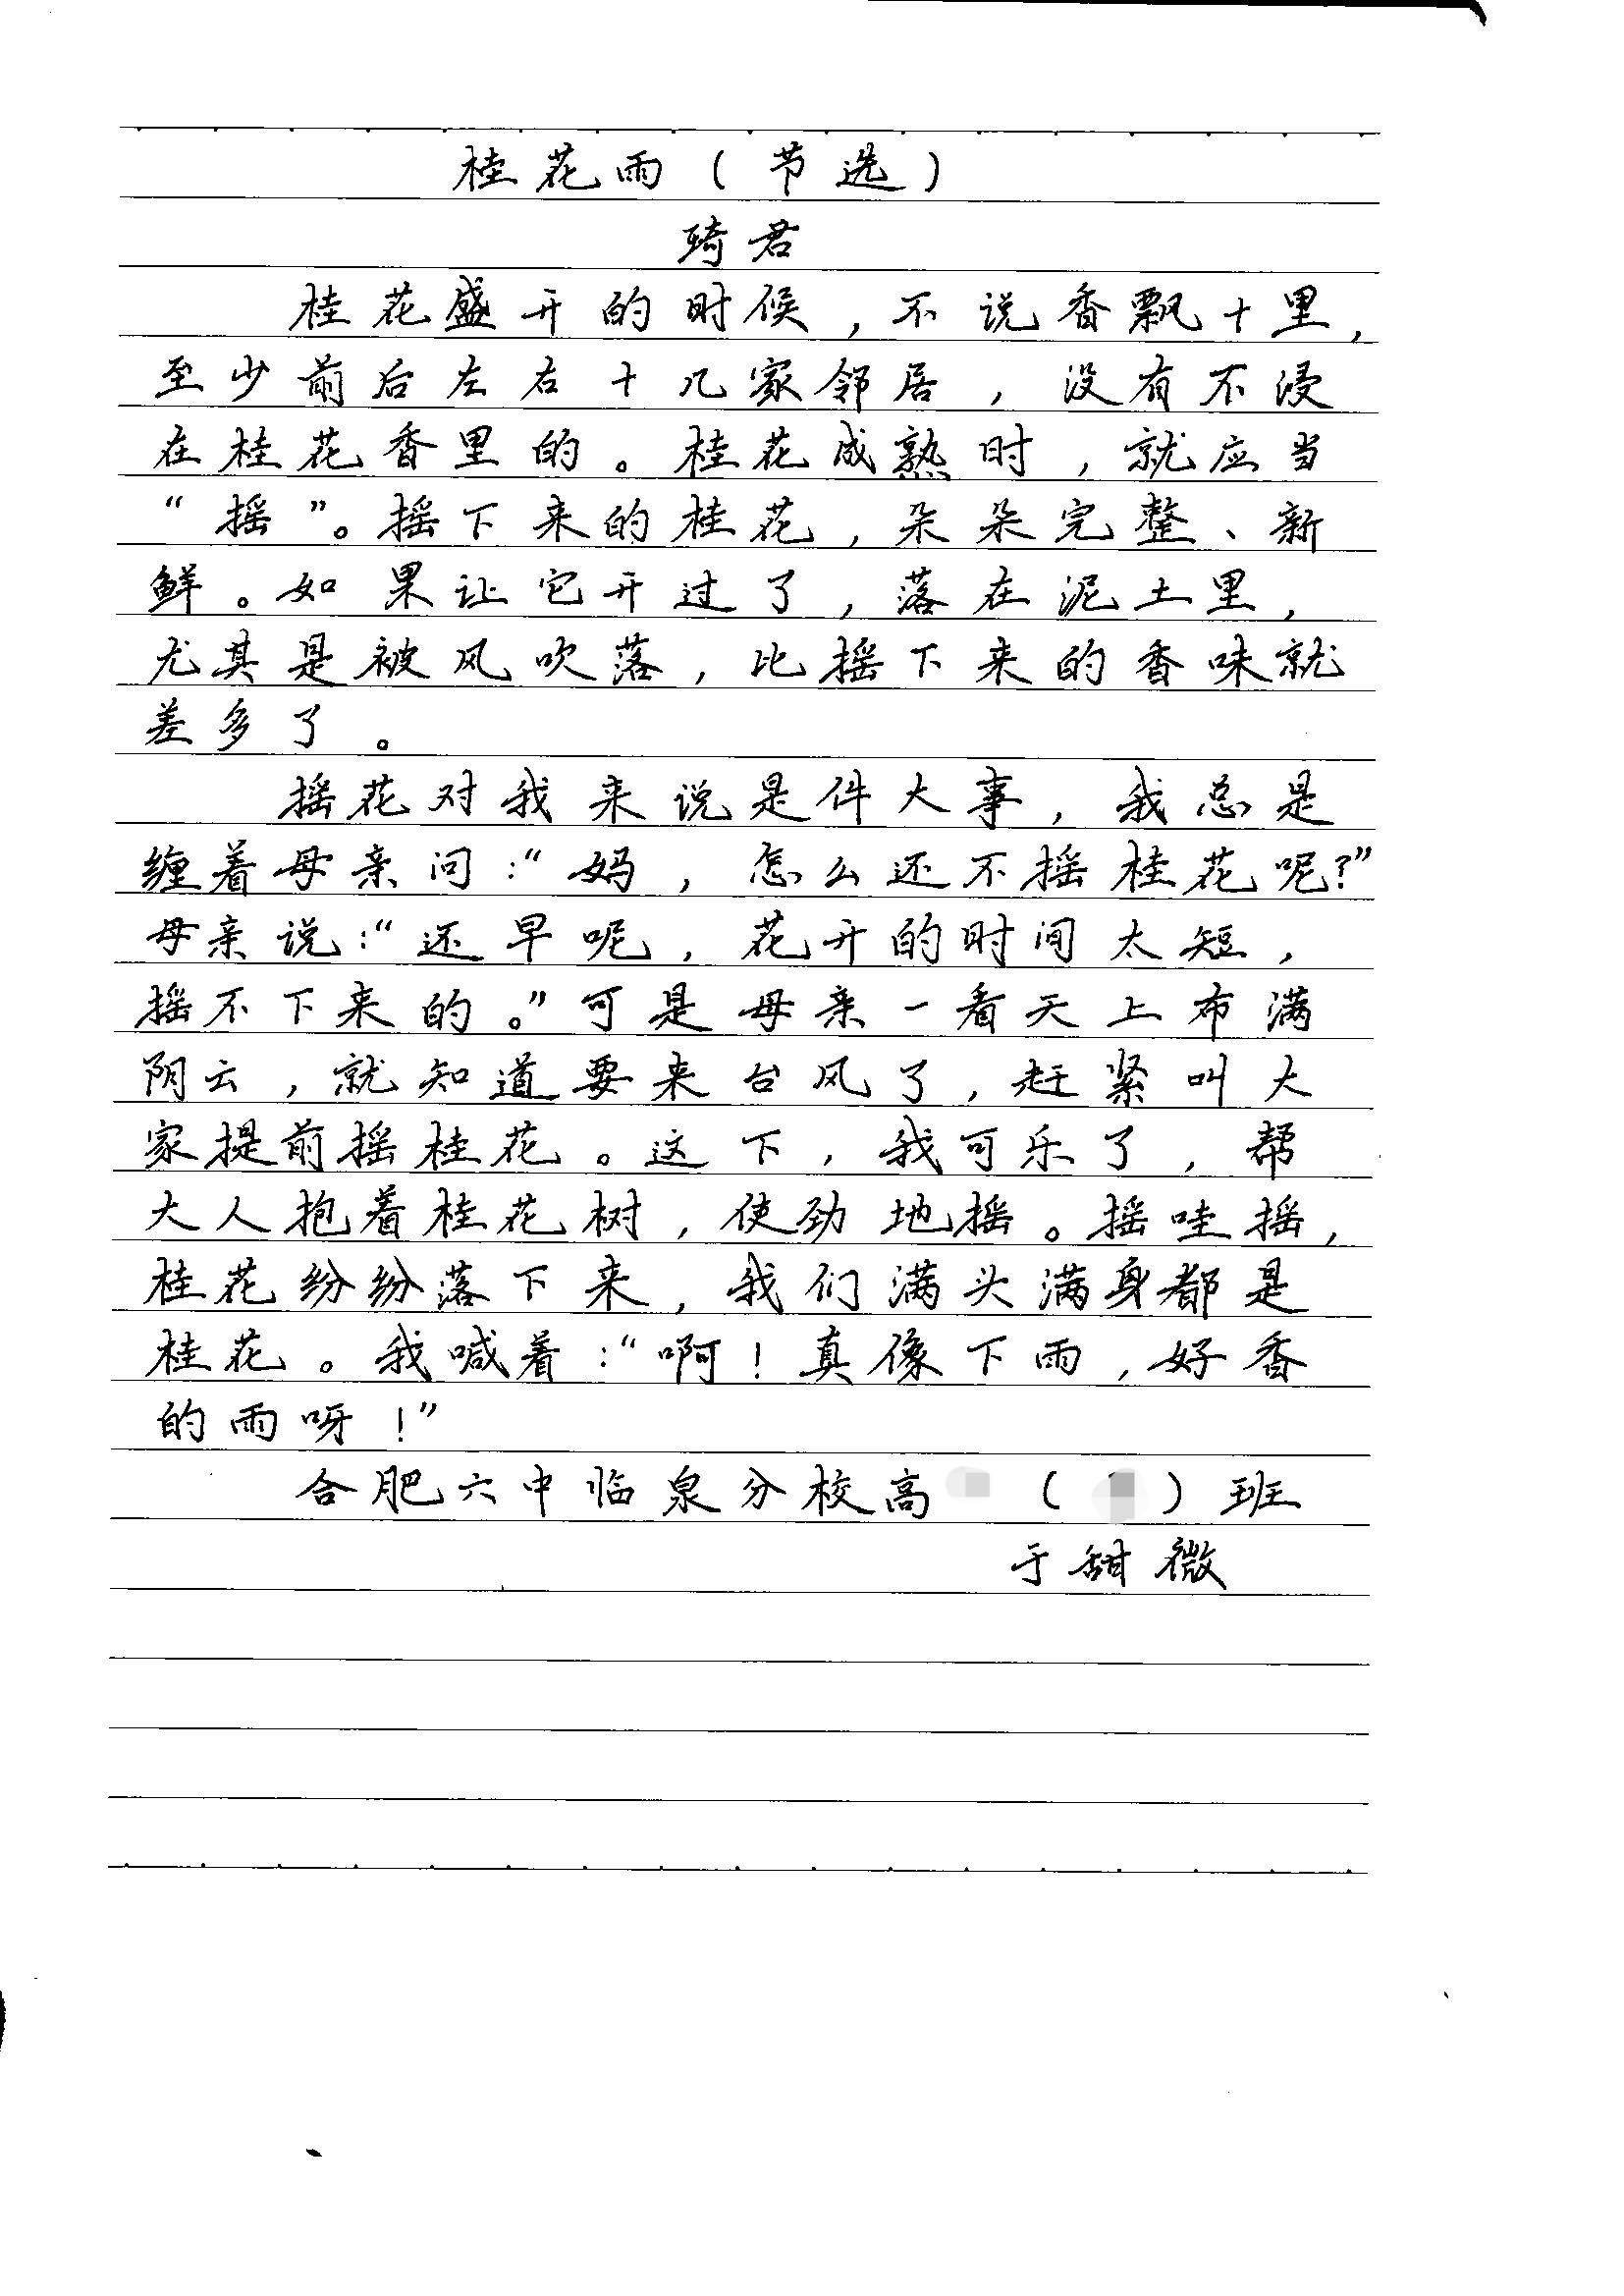 桂花雨(节选)
琦君
桂花盛开的时候,不说香飘十里,
至少前后左右十几家邻居,没有不浸
在桂花香里的。桂花成熟时,就应当
“摇”。摇下来的桂花,朵朵完整、新
鲜。如果让它开过了,落在泥土里,
尤其是被风吹落,比摇下来的香味就
差多了。
摇花对我来说是件大事,我总是
缠着母亲问:“妈,怎么还不摇桂花呢?”
母亲说:“还早呢,花开的时间太短,
摇不下来的。”可是母亲一看天上布满
阴云,就知道要来台风了,赶紧叫大
家提前摇桂花。这下,我可乐了,帮
大人抱着桂花树,使劲地摇。摇哇摇,
桂花纷纷落下来,我们满头满身都是
桂花。我喊着:“啊!真像下雨,好香
的雨呀!”
合肥六中临泉分校高 ( )班
于甜微